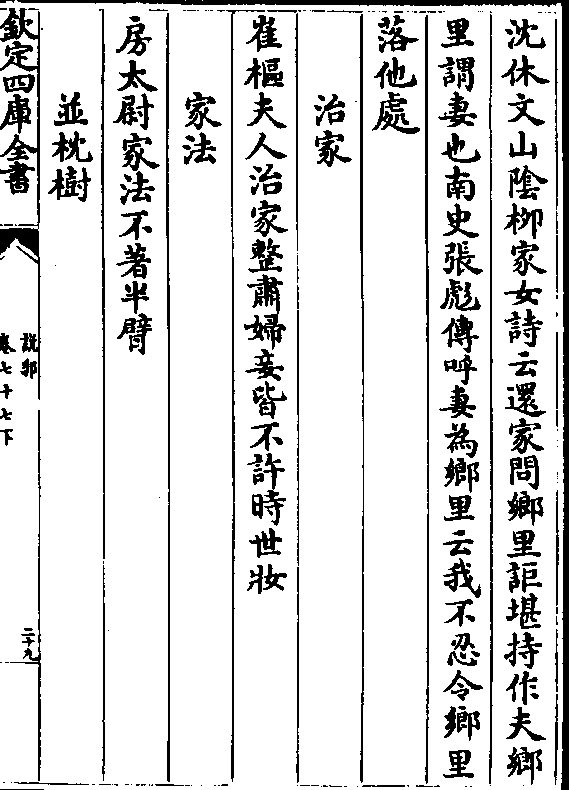 沈休文山陰栁家女詩云還家問鄉里詎堪持作夫鄉
里謂妻也南史張彪傳呼妻為鄉里云我不忍令鄉里
落他處
治家
崔樞夫人治家整肅婦妾皆不許時世妝
家法
房太尉家法不著半臂
並枕樹
欽定四庫全書
說郛
卷七十七下
二十九